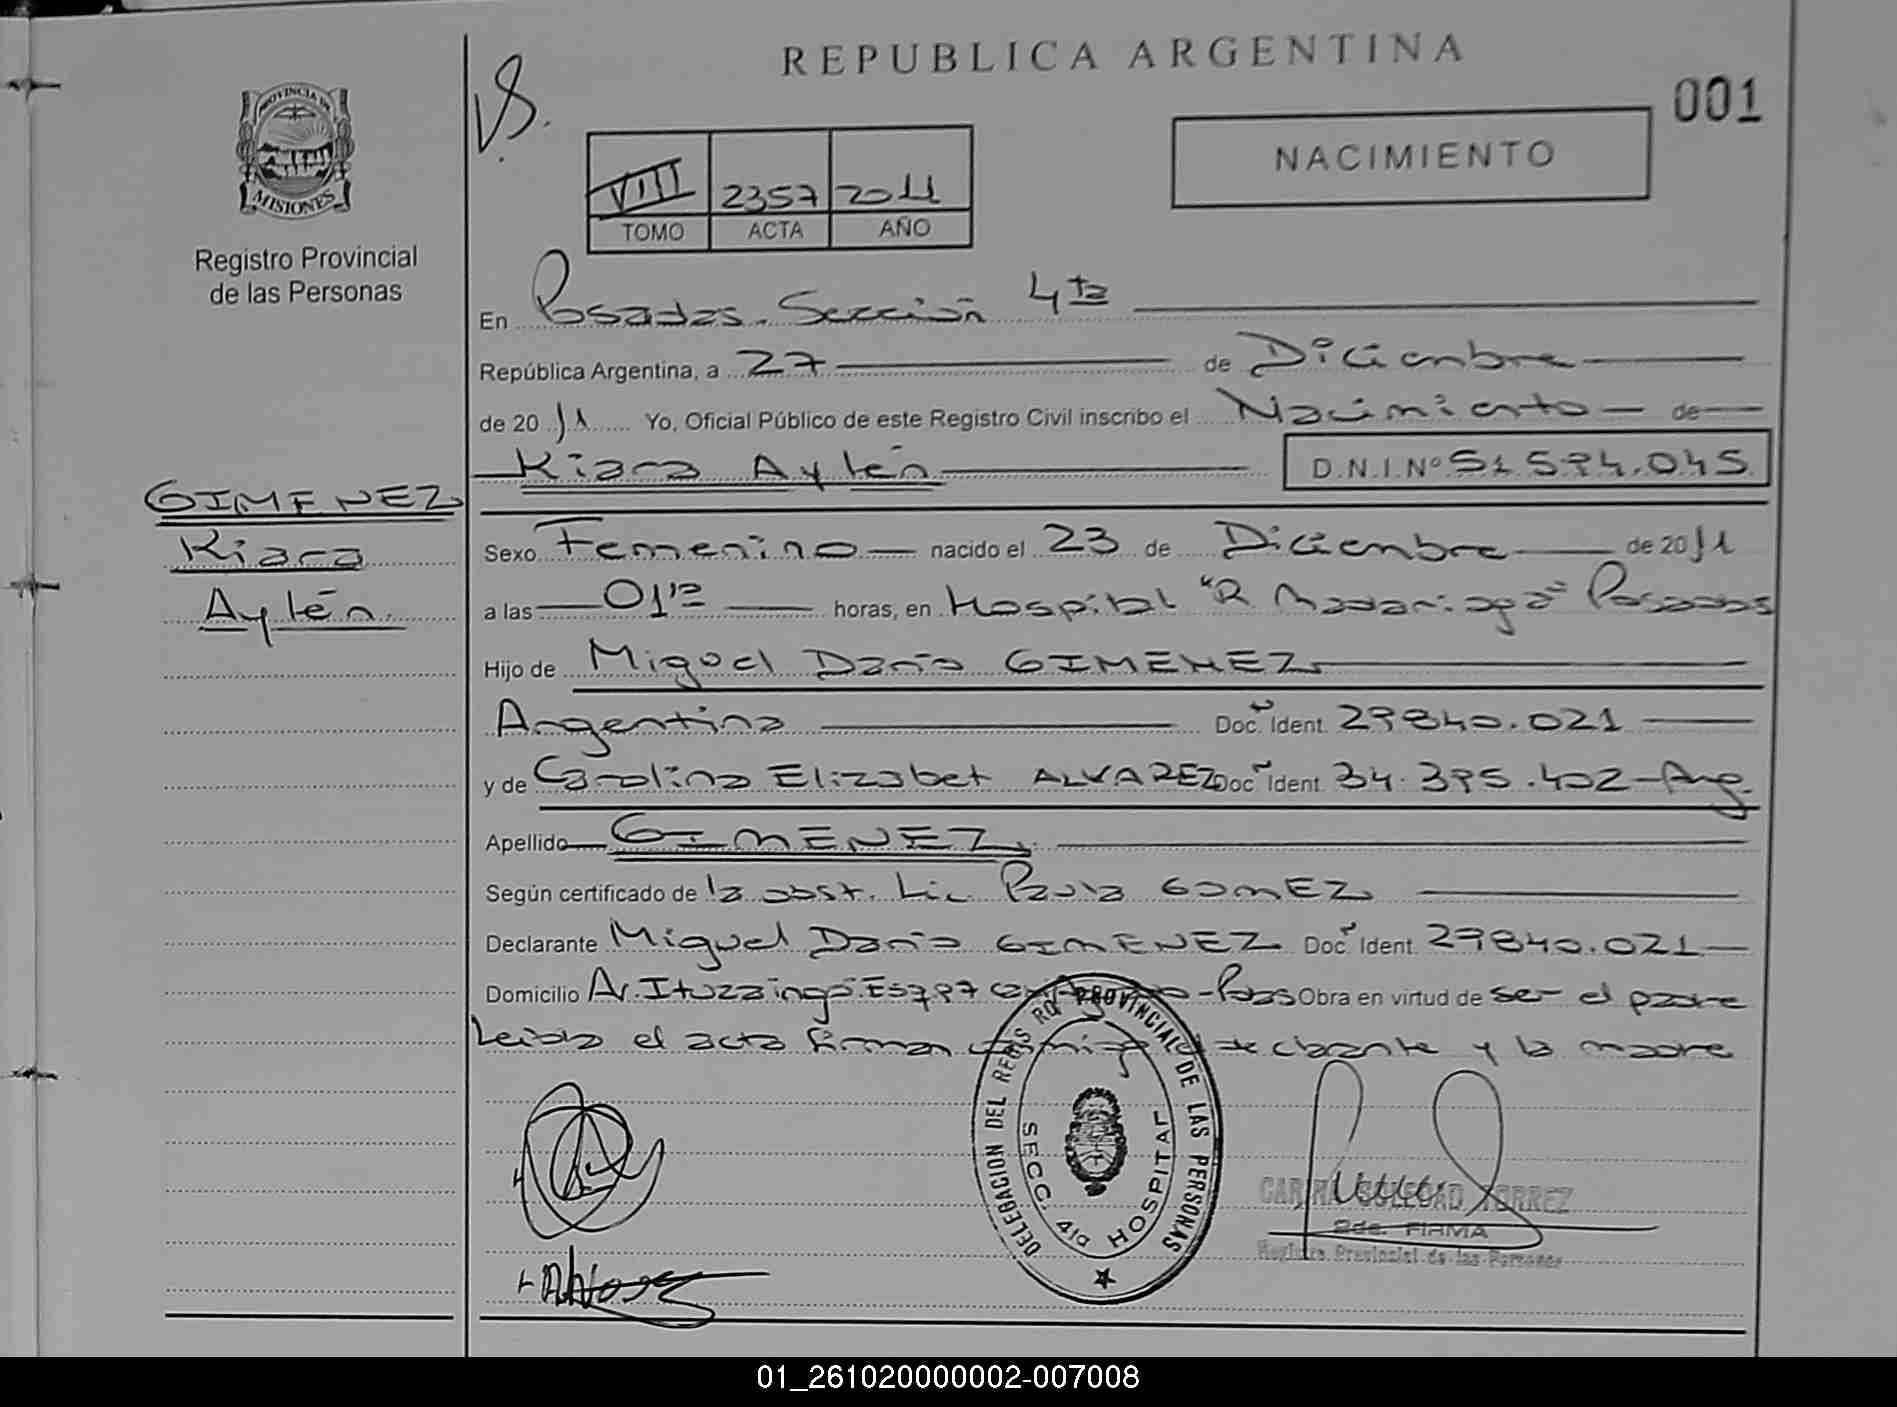 REPUBLICA ARGENTINA
001
NACIMIENTO
VIII 2357 2011
TOMO ACTA AÑO
PROVINCIA DE
MISIONES
Registro Provincial
de las Personas
GIMENEZ
Kiara
Aylén.
En Posadas. Sección 4ta
República Argentina, a 27 de Diciembre
de 2011 Yo, Oficial Público de este Registro Civil inscribo el Nacimiento de
Kiara Aylén D.N.I.Nº 51.594.045
Sexo Femenino nacido el 23 de Diciembre de 2011
a las 01 horas, en Hospital "R Madariaga" Posadas
Hijo de Miguel Dario GIMENEZ
Argentina Doc. Ident. 29840.021
y de Carolina Elizabet ALVAREZ Doc. Ident. 34.395.402-Arg.
Apellido GIMENEZ
Según certificado de la obst. Lic Paula GOMEZ
Declarante Miguel Dario GIMENEZ Doc. Ident. 29840.021
Domicilio Av. Ituzaingó Pdas Obra en virtud de ser el padre
Leida el acta firman conmigo el declarante y la madre
DELEGACION DEL REGISTRO PROVINCIAL DE LAS PERSONAS
SECC. 4ta HOSPITAL
CARINA SOLEDAD TORREZ
2da. FIRMA
Registro Provincial de las Personas
01_261020000002-007008